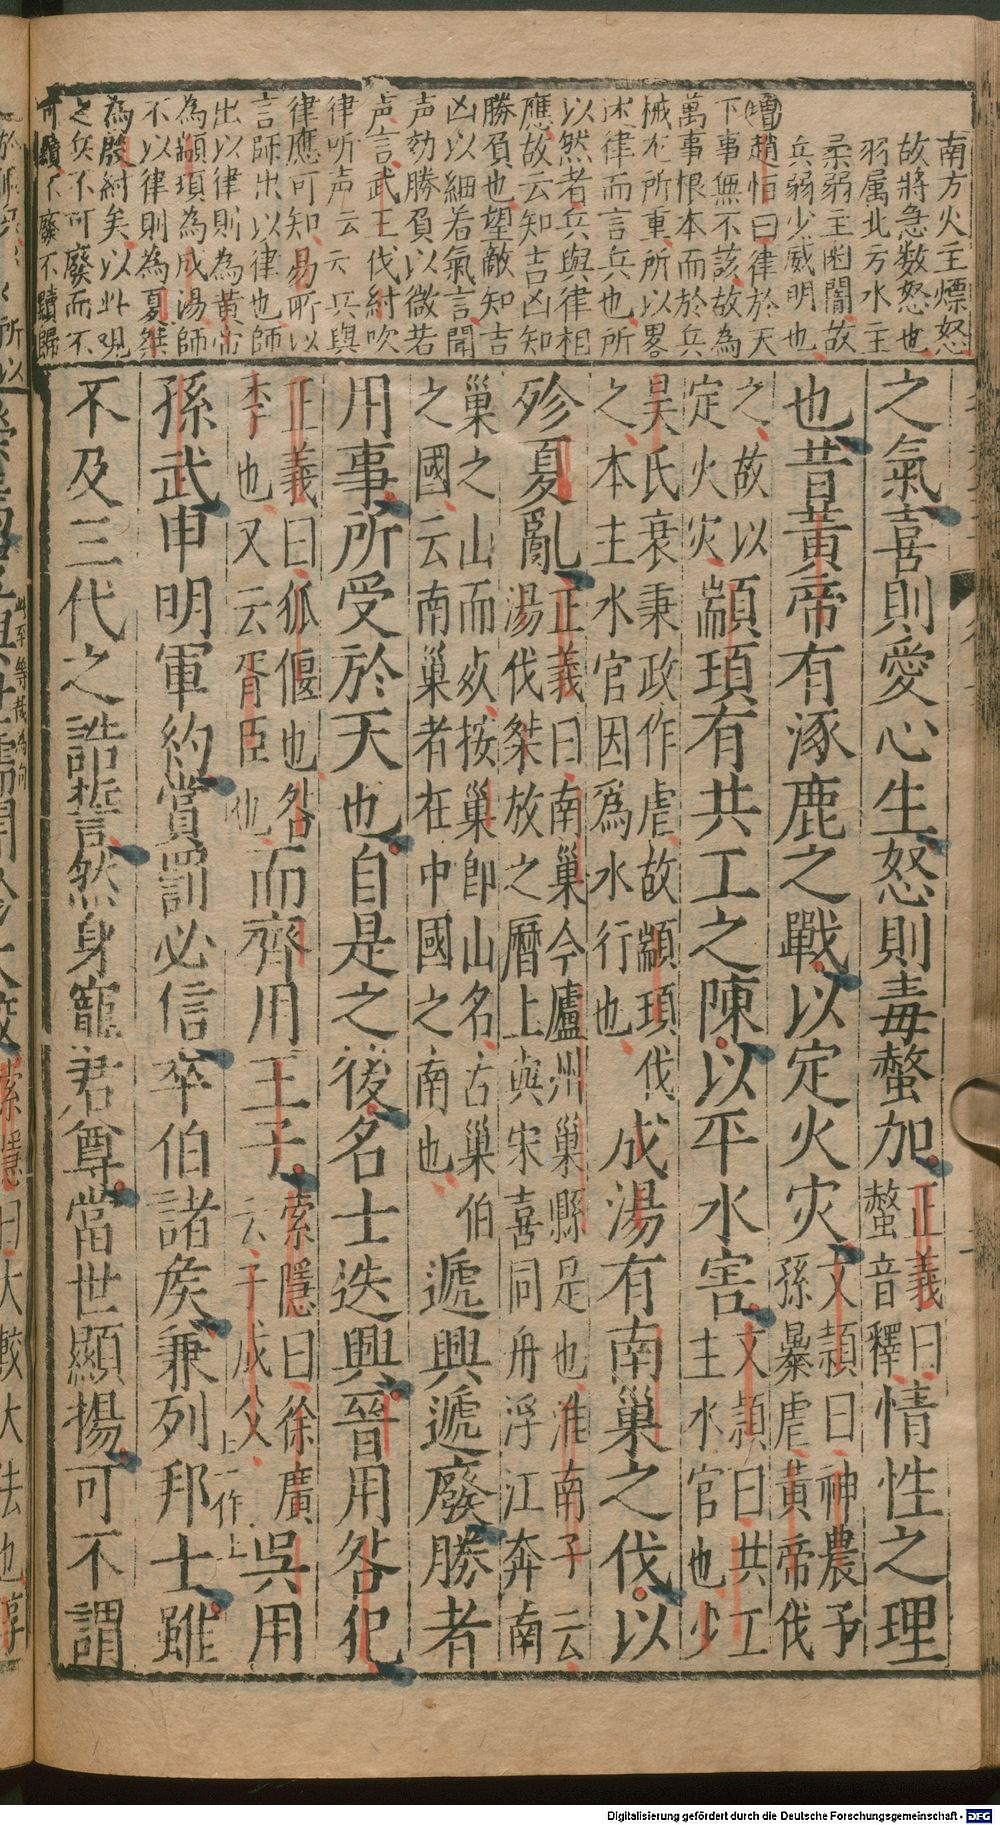 南方火主熛怒
故將急数怒也
弱属北方水主
柔弱主幽闇故
兵弱少威明也
趙恒曰律於天
下事無不該故為
萬事根本而於兵
械尤所重所以畧
述律而言兵也所
以然者兵與律相
應故云知吉凶知
勝負也望敵知吉
凶以細若氣言聞
声効勝負以微若
声言武王伐紂吹
律听声云云兵與
律應可知易所以
言師出以律也師
出以律則為黃帝
為顓頊為成湯師
不以律則為夏桀
為殷紂矣以此現
之兵不可廢而不
可黷不廢不黷歸
之氣喜則愛心生怒則毒螫加正義曰
螫音釋情性之理
也昔黃帝有涿鹿之戰以定火灾文頴曰神農子
孫暴虐黃帝伐
之故以
定火灾顓頊有共工之陳以平水害文頴曰共工
主水官也少
昊氏衰秉政作虐故顓頊伐
之本主水官因爲水行也成湯有南巢之伐以
殄夏亂正義曰南巢今廬州巢縣是也淮南子云
湯伐桀放之曆上與宋喜同舟浮江奔南
巢之山而死按巢即山名古巢伯
之國云南巢者在中國之南也遞興遞廢勝者
用事所受於天也自是之後名士迭興晉用咎犯
正義曰狐偃也咎
季也又云胥臣也而齊用王子索隱曰徐廣
云子成父上一作上吳用
孫武申明軍約賞罰必信卒伯諸矦兼列邦士雖
不及三代之誥誓然身寵君尊當世顯揚可不謂
Digitalisierung gefördert durch die Deutsche Forschungsgemeinschaft - DFG